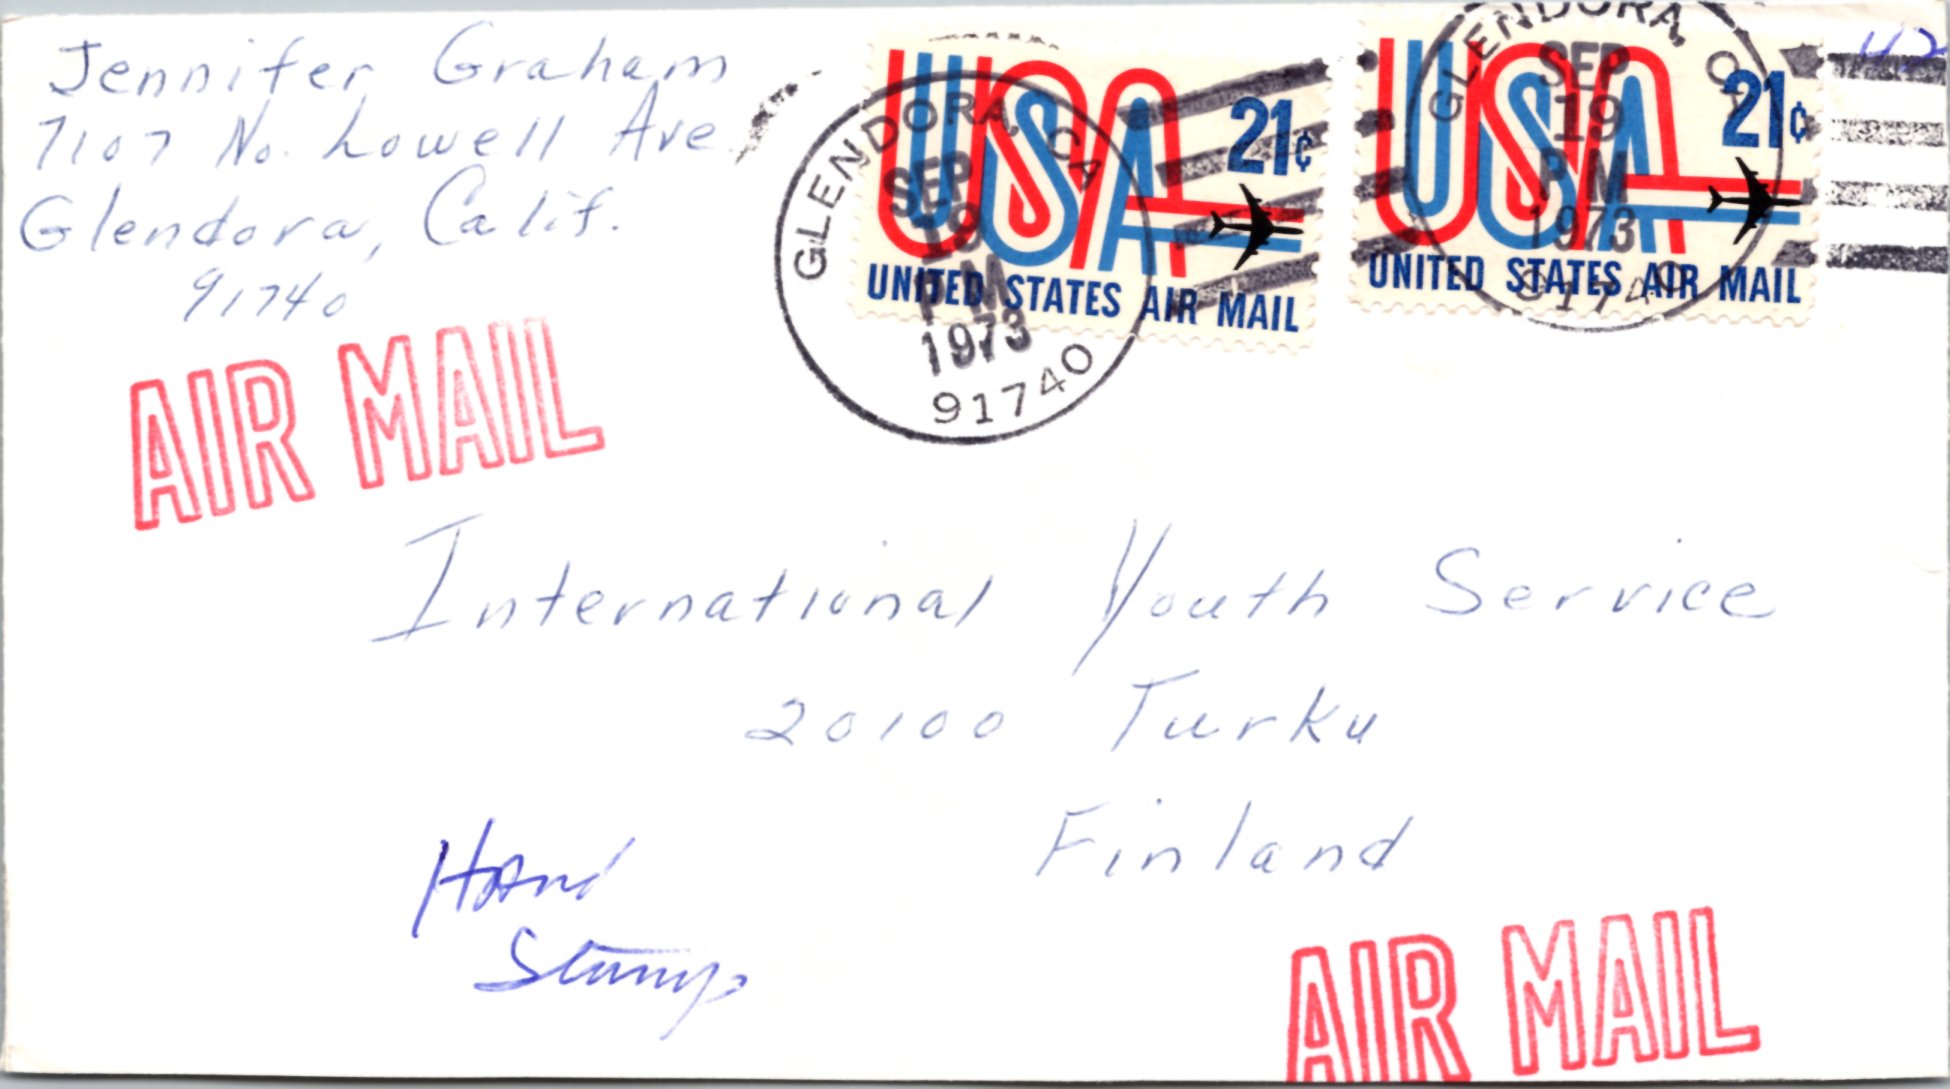 Jennifer Graham
7107 No. Lowell Ave
Glendora, Calif.
91740
GLENDORA, CA
SEP
19
PM
1973
91740
USA
21¢
UNITED STATES AIR MAIL
GLENDORA, CA
SEP
19
PM
1973
91740
USA
21¢
UNITED STATES AIR MAIL
42
AIR MAIL
International Youth Service
20100 Turku
Finland
Hand
Stamp
AIR MAIL